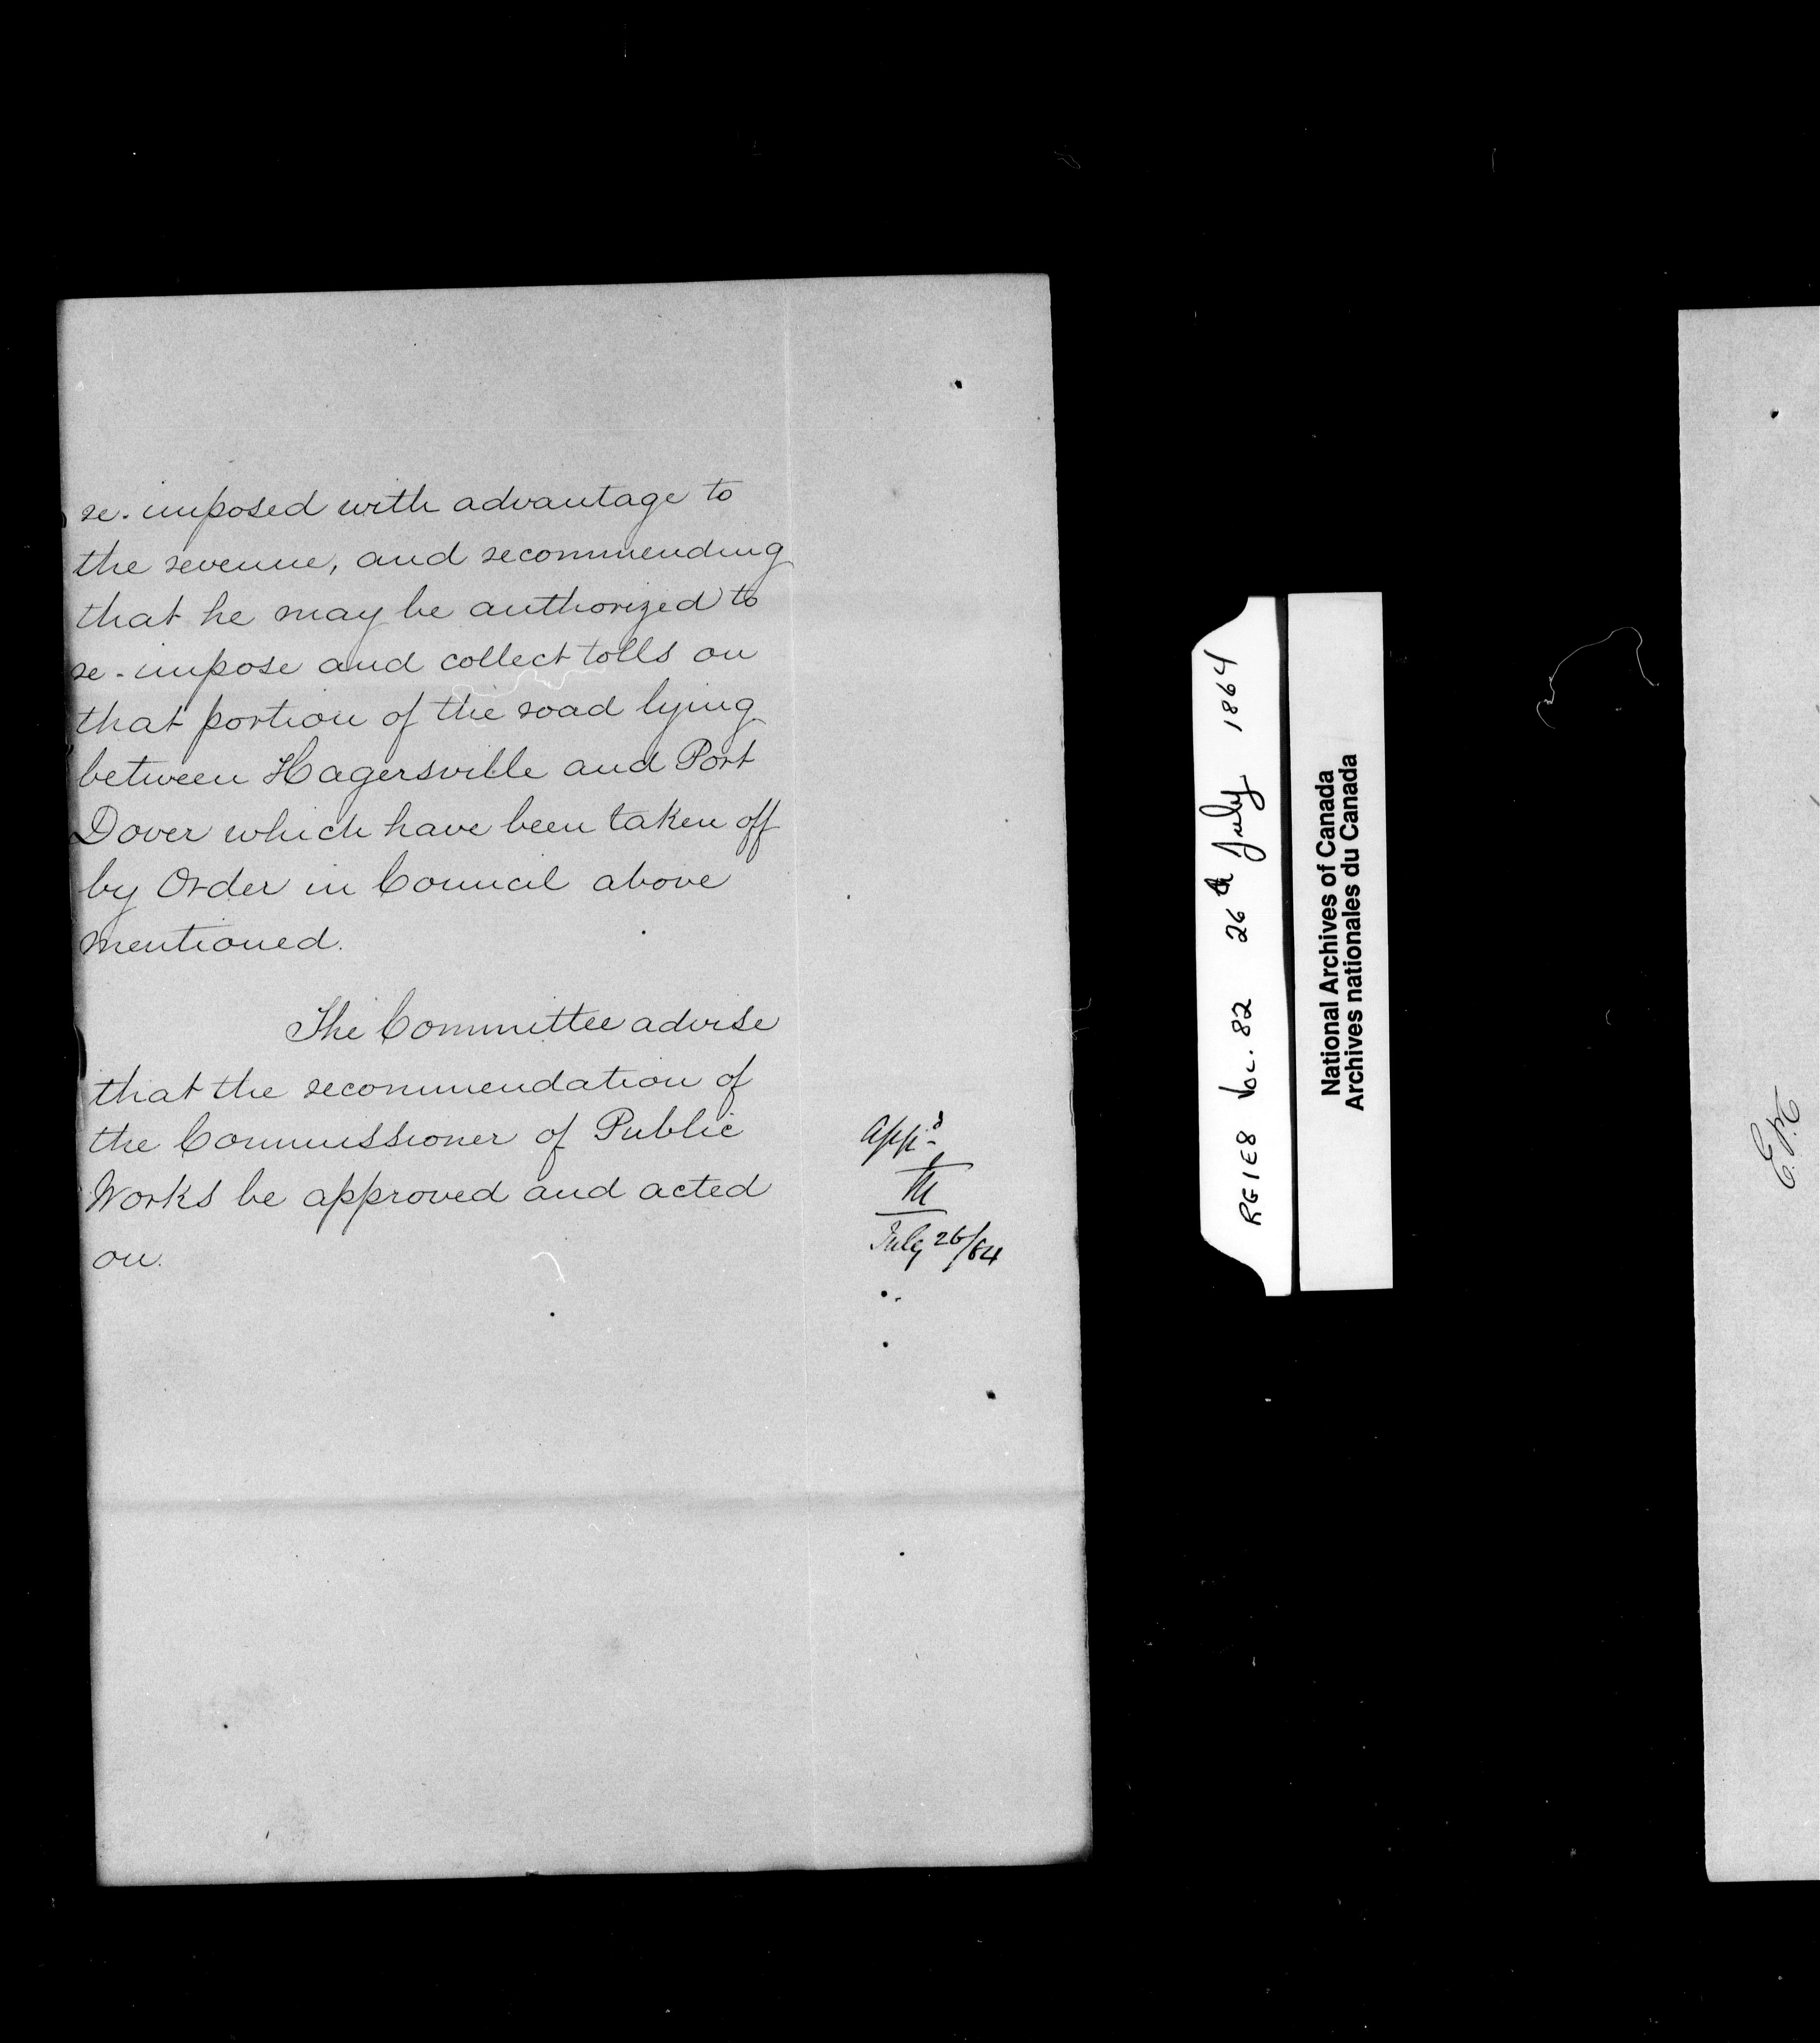 re-imposed with advantage to
the revenue, and recommending
that he may be authorized to
re-impose and collect tolls on
that portion of the road lying
between Hagersville and Port
Dover which have been taken off
by Order in Council above
mentioned.
The Committee advise
that the recommendation of
the Commissioner of Public
Works be approved and acted
on.
Appd
July 26/64
RG1E8 Vol. 82 26th July 1864
National Archives of Canada
Archives nationales du Canada